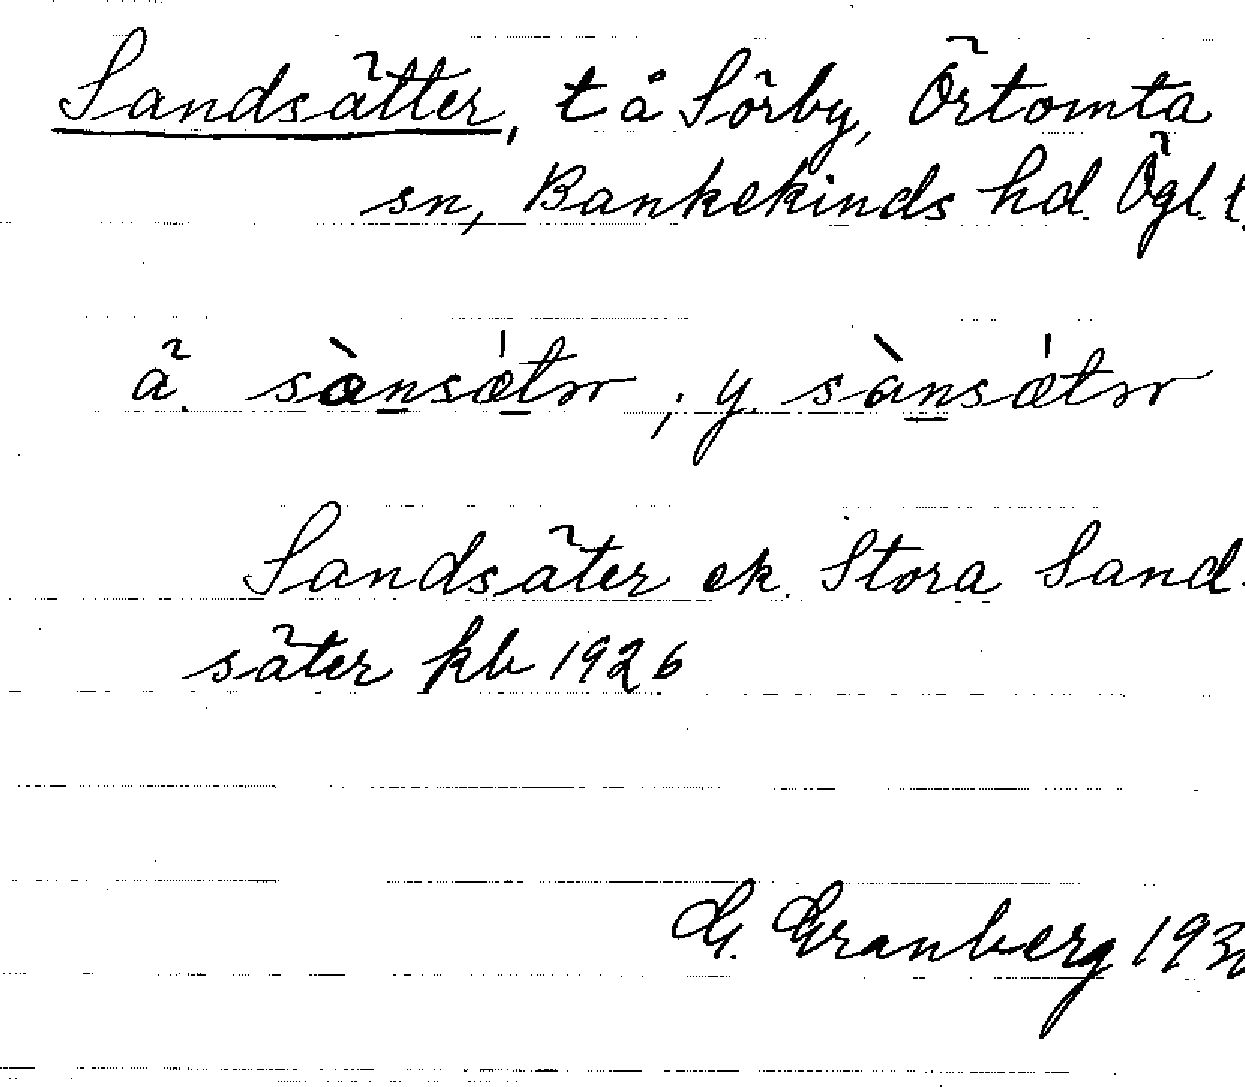 Sandsätter, t å Sörby, Örtomta
sn, Bankekinds hd. Ögl. l.
ä. sànsǽtr ; y. sànsǽtr
Sandsäter ek. Stora Sand-
säter kb 1926
G. Granberg